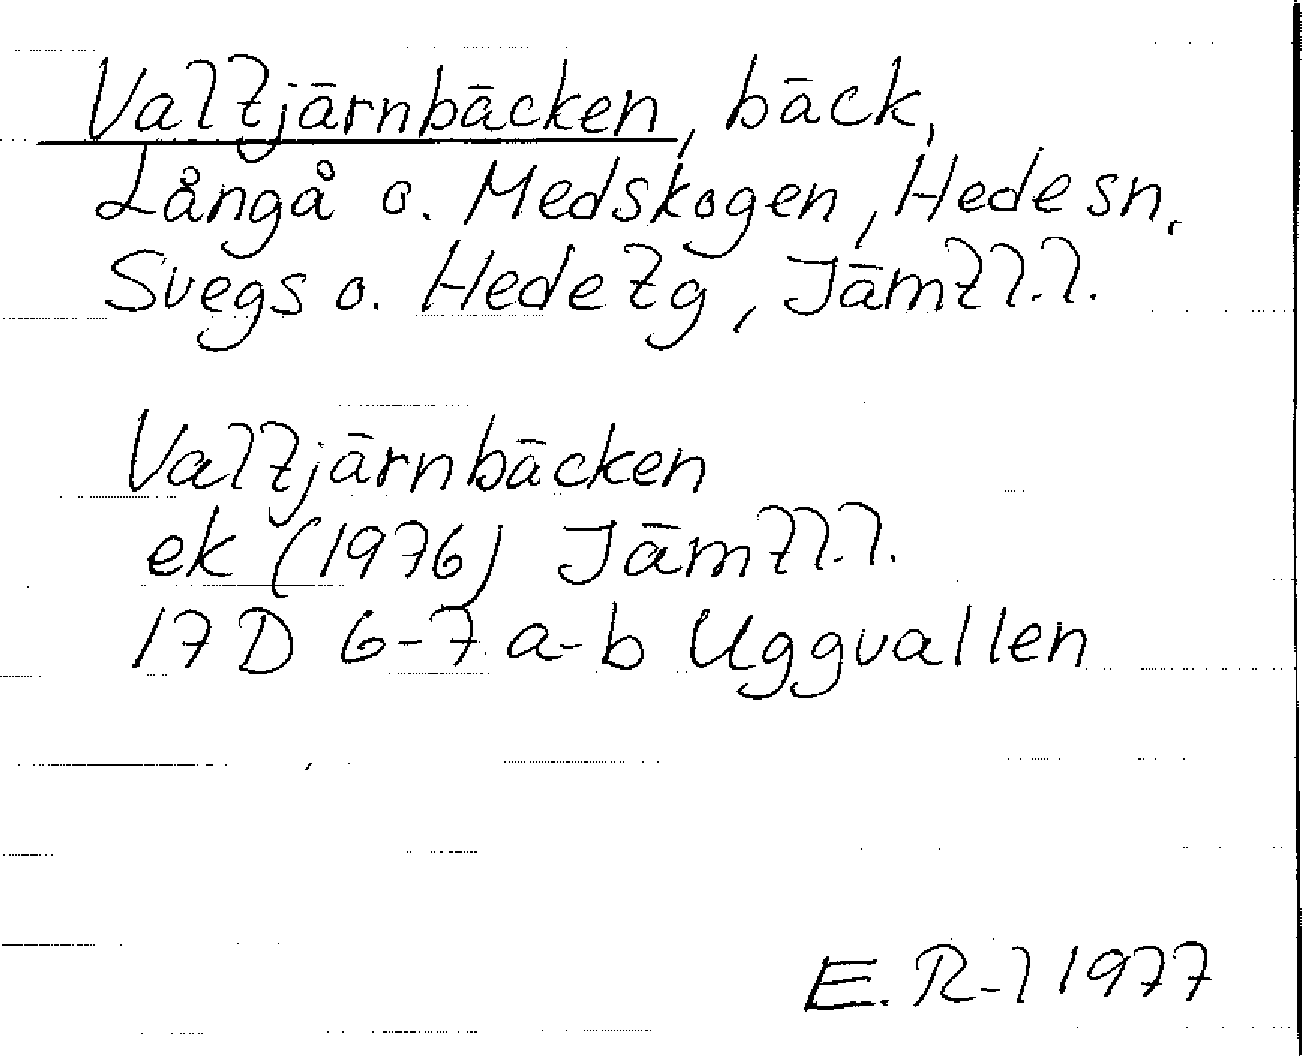 Valtjärnbäcken, bäck,
Långå o. Medskogen, Hede sn,
Svegs o. Hede tg, Jämtl.l.
Valtjärnbäcken
ek (1976) Jämtl.l.
17 D 6-7 a-b Uggvallen
E. R-l 1977